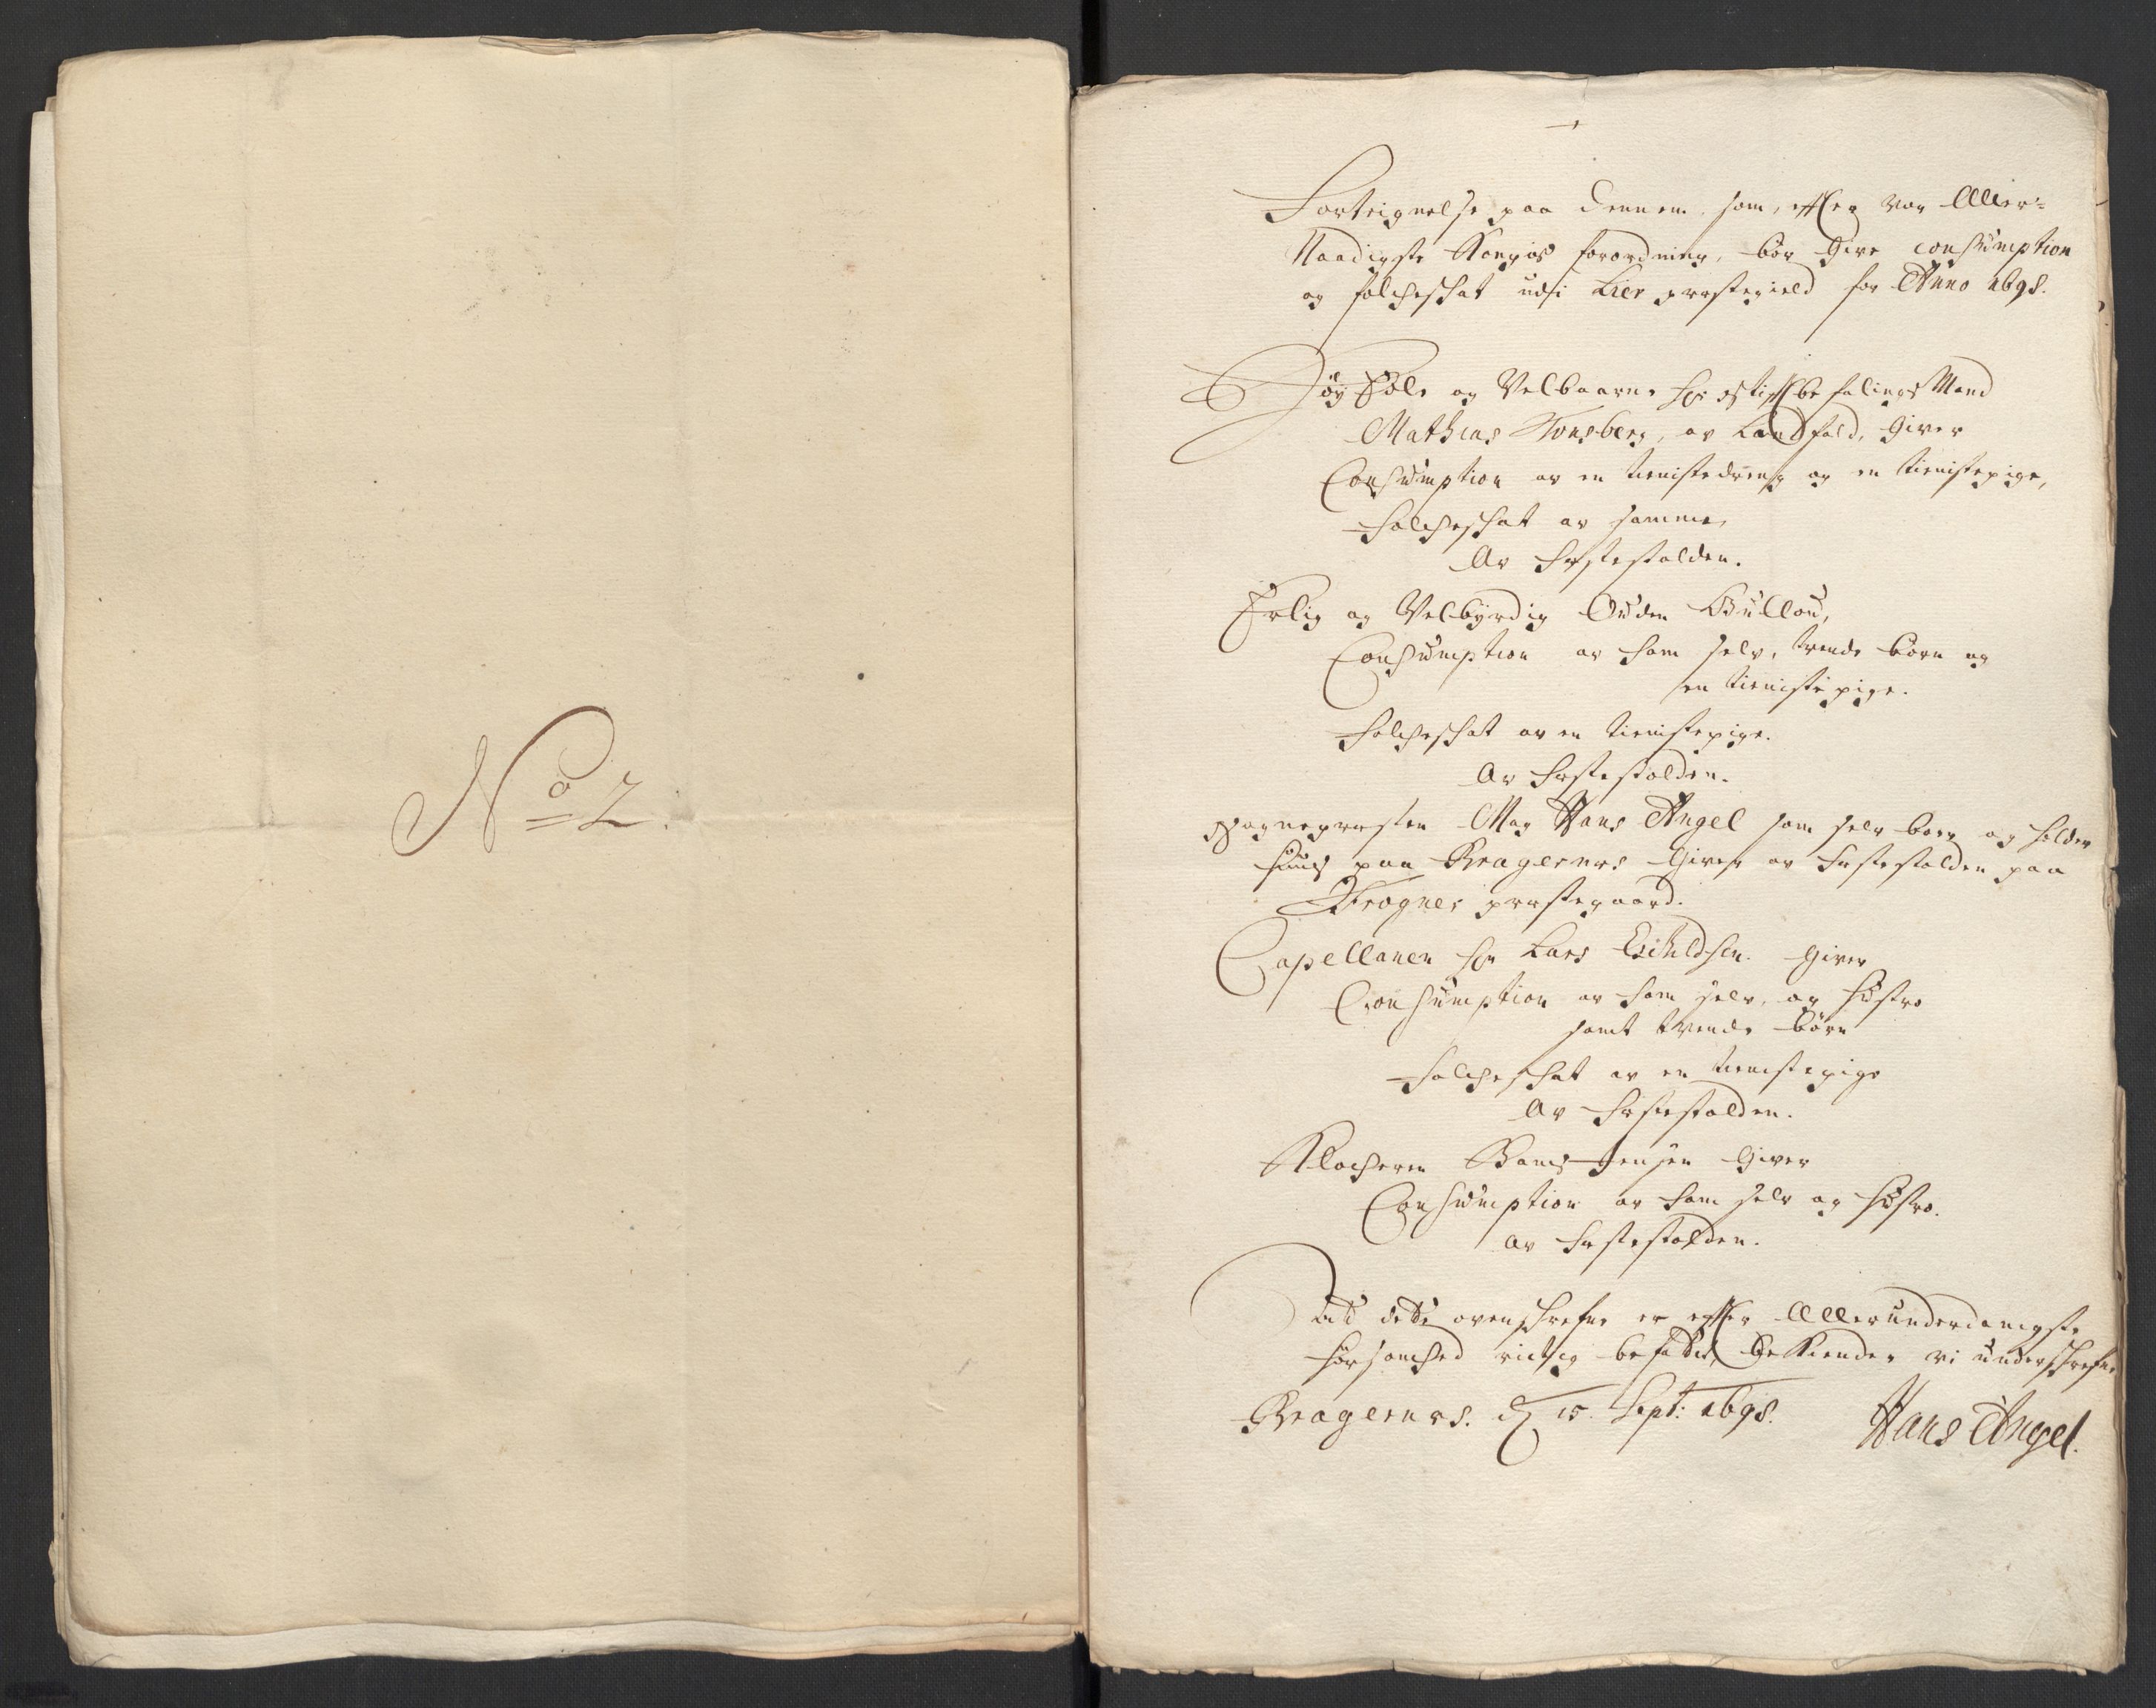 No 2.
Forteignelse paa dennem, som, effter vor Aller-
Naadigste Kongis forordning, bør Give consumption
og folcheschat udi Lier prestegield for Anno 1698.
Høy Edle og Velbaarne Hr Stifftbefalingsmand
Mathias Tonsberg, av Landfald, Giver
Consumption av en tienistedreng og en tienistepige,
Folcheschat av samme,
Av Hestesholden.
Erlig og Velbyrdig Ouden Bullou,
Consumption av ham selv, trende børn og
en tienistepige.
Folcheschat av en tienistepige.
Av Hesteholden.
Sognepresten Mag Hans Angel som selv boer og holder
huus paa Bragernes Giver av hesteholden paa
Frogner prestegaard.
Capellanen Hr Lars Eschildsen Giver
Consumption av ham selv, og hustro
samt trende børn
Folcheschat av en tienistepige
Av Hesteholden.
Klocheren Jensen Giver
Consumption av ham selv og hustro.
av hesteholden.
At dette ovenschrefne er effter Allerunderdanigste
hørsomhed richtig befattet, bekiender vi underschrefne
Bragernes. d 15. Sept: 1698. Hans Angel.